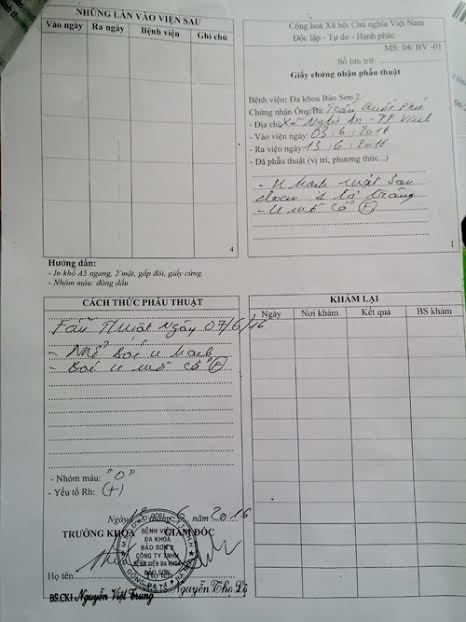 NHỮNG LẦN VÀO VIỆN SAU
Vào ngày Ra ngày Bệnh viện Ghi chú
4
Cộng hoa Xã hội Chủ nghĩa Việt Nam
Độc lập - Tự do - Hanh phúc
MS: 04/ BV -01
Số lưu trữ:
Giấy chứng nhận phẫu thuật
Bệnh viện: Đa khoa Bảo Sơn 2
Chứng nhận Ông/Bà: Trần Quốc Phú
- Địa chỉ: Xã Nghi Ân - TP Vinh
- Vào viện ngày: 03, 6, 2016
- Ra viện ngày: 13, 6, 2016
- Đã phẫu thuật (vị trí, phương thức...)
- U
- U mỡ cổ (F)
1
Hướng dẫn:
- In khổ A5 ngang, 2 mặt, gấp đôi, giấy cứng.
- Nhóm máu: đóng dấu
CÁCH THỨC PHẪU THUẬT
Fẫu Thuật ngày 07/6/16
- bóc u
- Bóc u mỡ cổ (F)
- Nhóm máu: "O"
- Yếu tố Rh: (+)
Ngày 13 tháng 6 năm 2016
TRƯỞNG KHOA GIÁM ĐỐC
BỆNH VIỆN
ĐA KHOA
BẢO SƠN 2
CÔNG TY TNHH
BỆNH VIỆN ĐA KHOA
BẢO SƠN
Họ tên
BS.CK1 Nguyễn Việt Trung Nguyễn Thọ Lộ
KHÁM LẠI
Ngày Nơi khám Kết quả BS khám